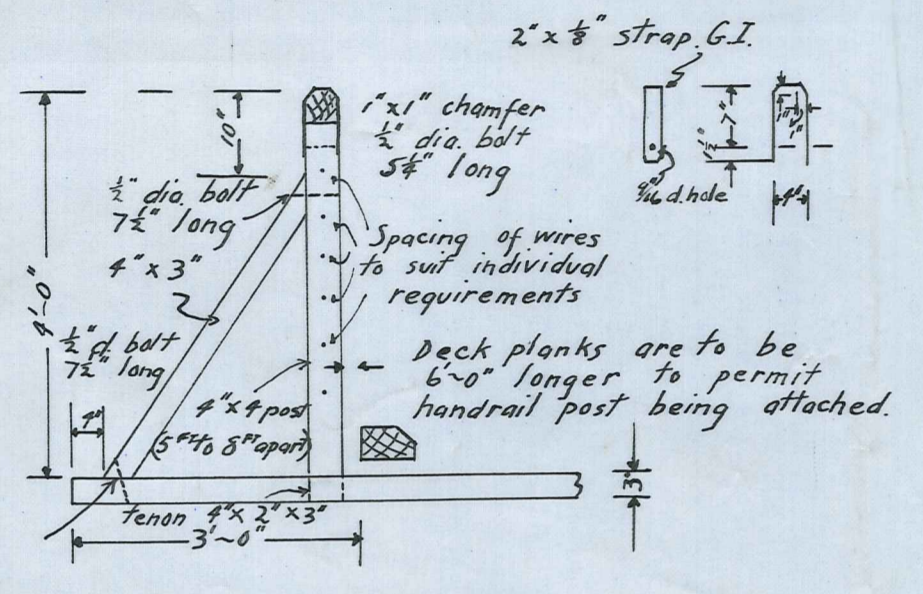 2" x 1/8" strap. G.I.
10"
1" x 1" chamfer
1/2" dia. bolt
5 1/4" long
7"
1 1/2"
1"
1"
9/16 d. hole
4"
1/2" dia. bolt
7 1/2" long
4" x 3"
Spacing of wires
to suit individual
requirements
4'~0"
1/2" d. bolt
7 1/2" long
Deck planks are to be
6'~0" longer to permit
handrail post being attached.
4"
4" x 4 post
(5 FT to 8 FT apart)
3"
tenon 4" x 2" x 3"
3'~0"